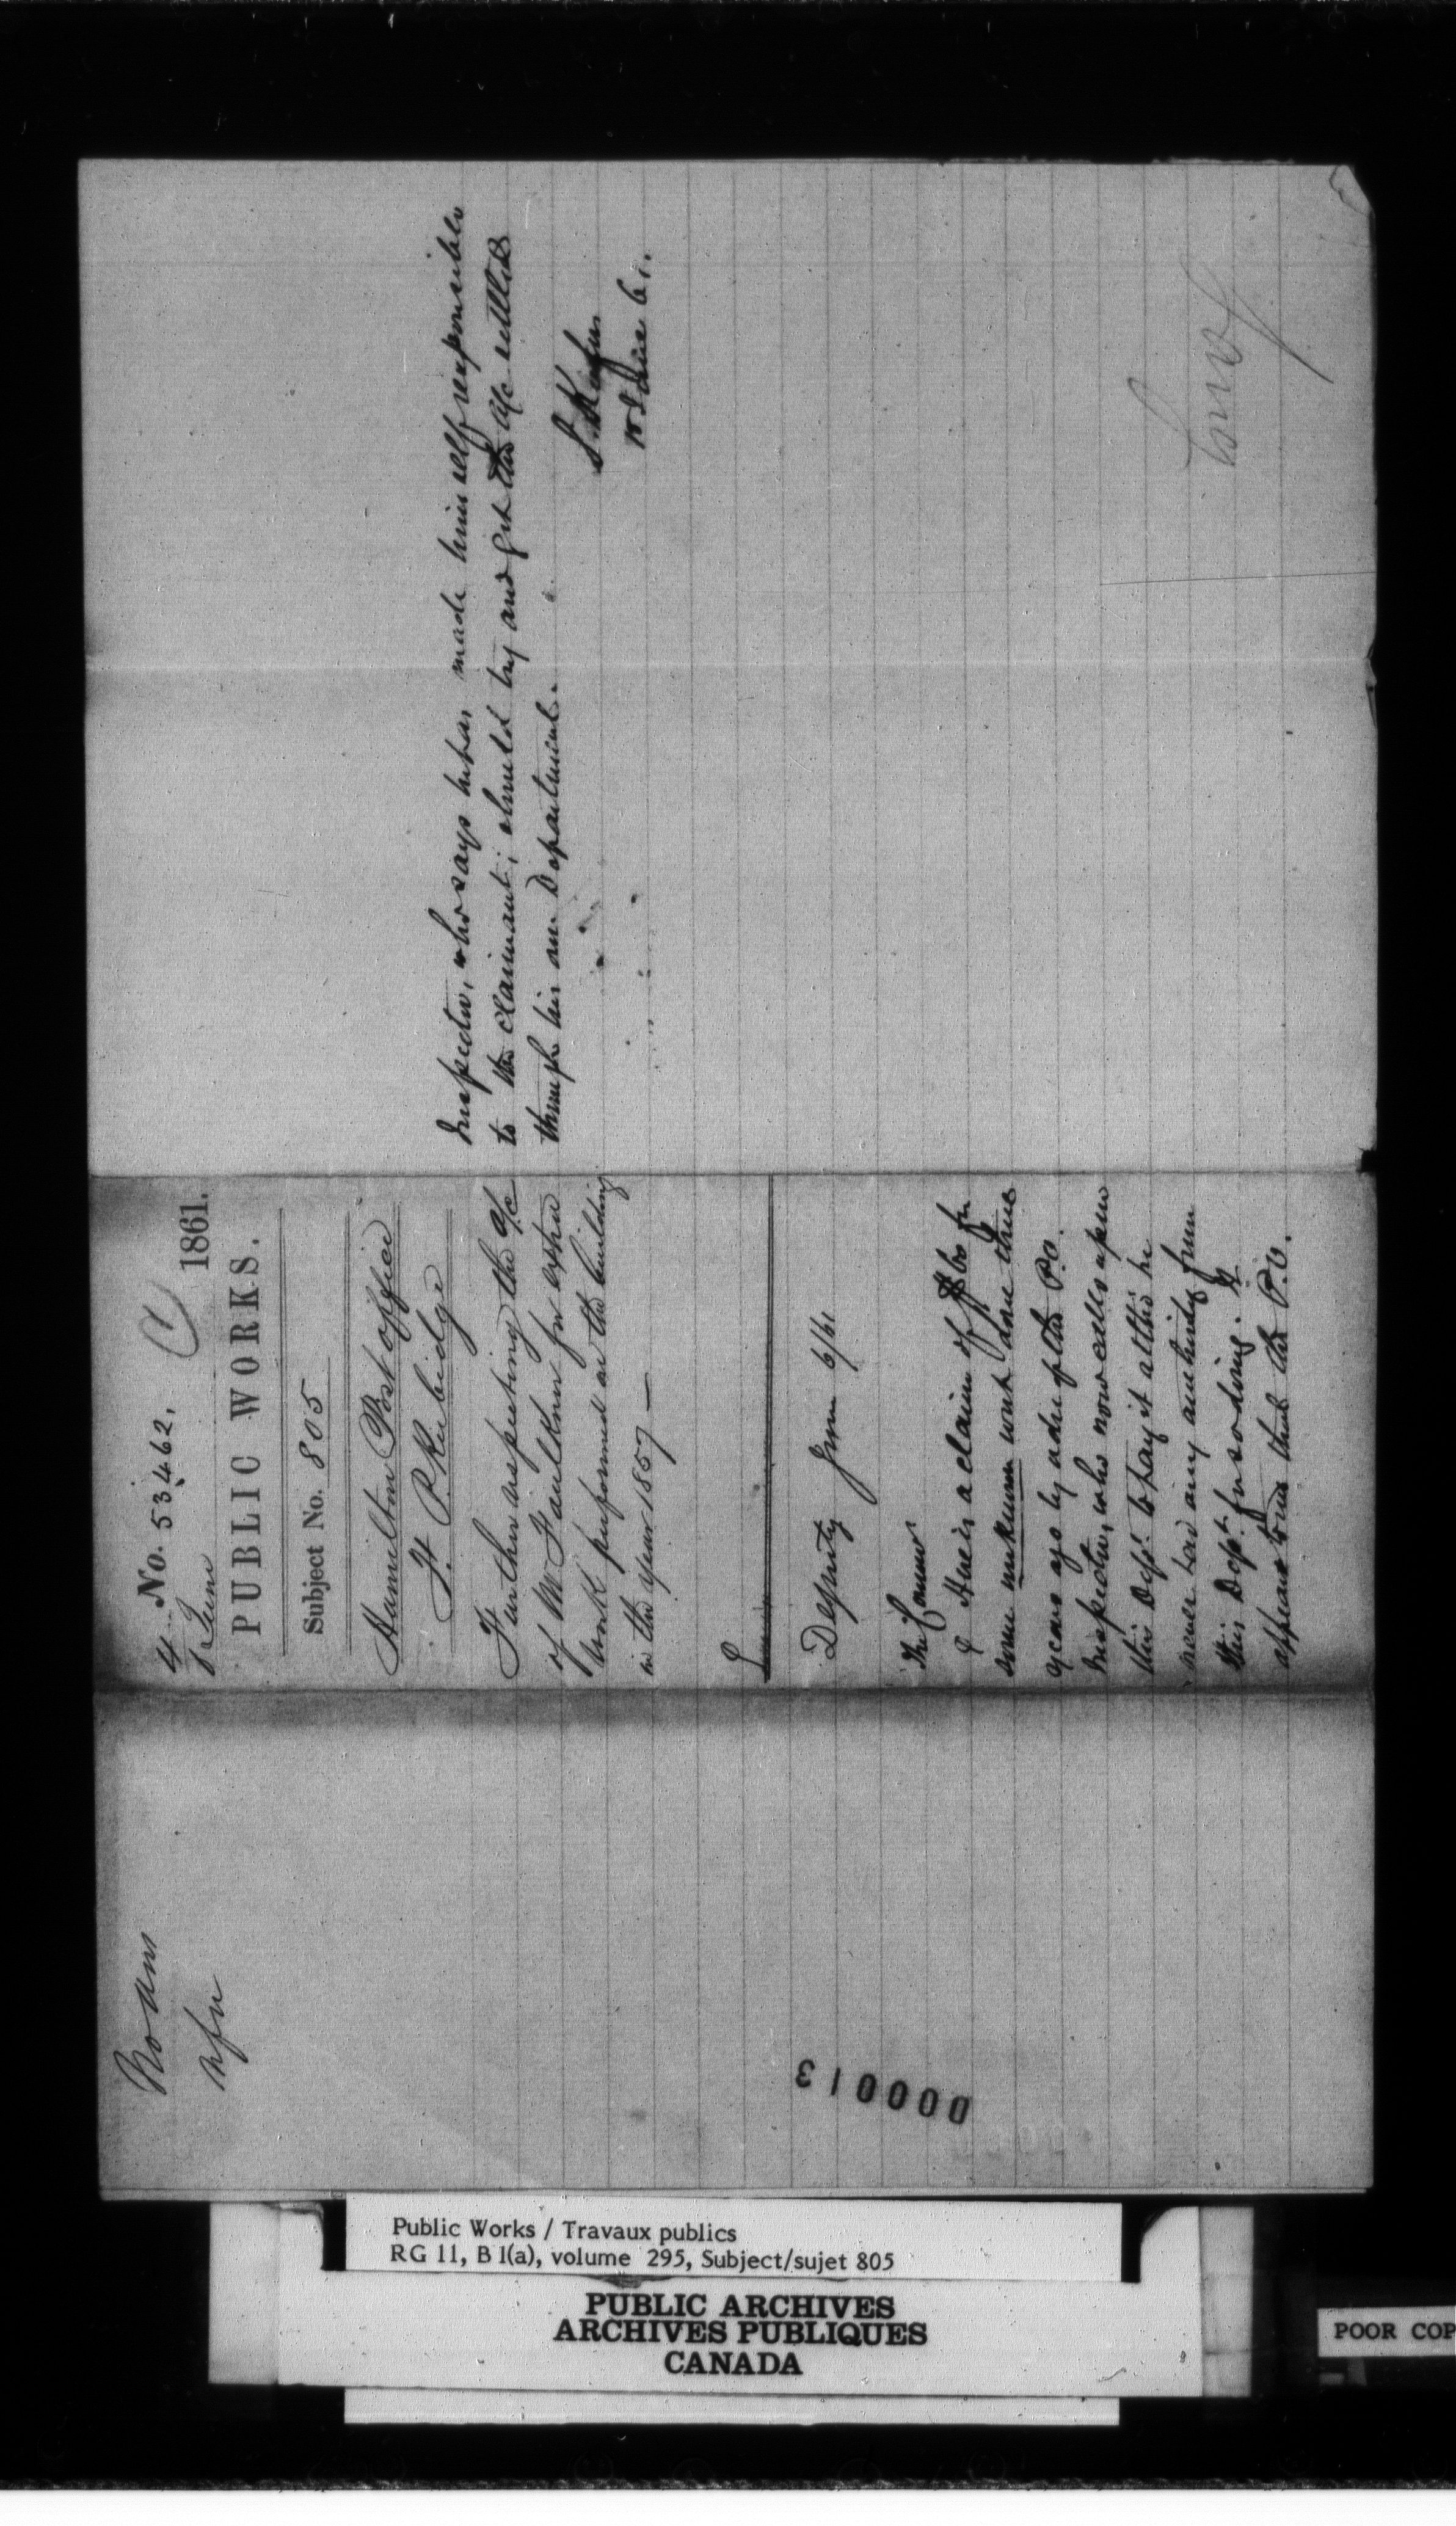 No. 53,462.
1861.
4
6 June
PUBLIC WORKS.
Subject No. 805
Hamilton Post office
F. P. Rubidge
Further respecting the a/c
of Mr Faulkner for extra
work performed on the building
in the year 1857 —
Deputy June 6/61
The Commr
Here is a claim of $60 for
some unknown work done three
years ago by order of the P.O.
Inspector, who now calls upon
this Dept. to pay it altho' he
never had any authority from
this Dept. for so doing. It
appears to me that the P.O.
Inspector, who says he has made himself responsible
to the claimant, should try and get the a/c settled
through his own Department.
S. Keefer
June 61.
No Ans
000013
Public Works / Travaux publics
RG 11, B 1(a), volume 295, Subject/sujet 805
PUBLIC ARCHIVES
ARCHIVES PUBLIQUES
CANADA
POOR COP